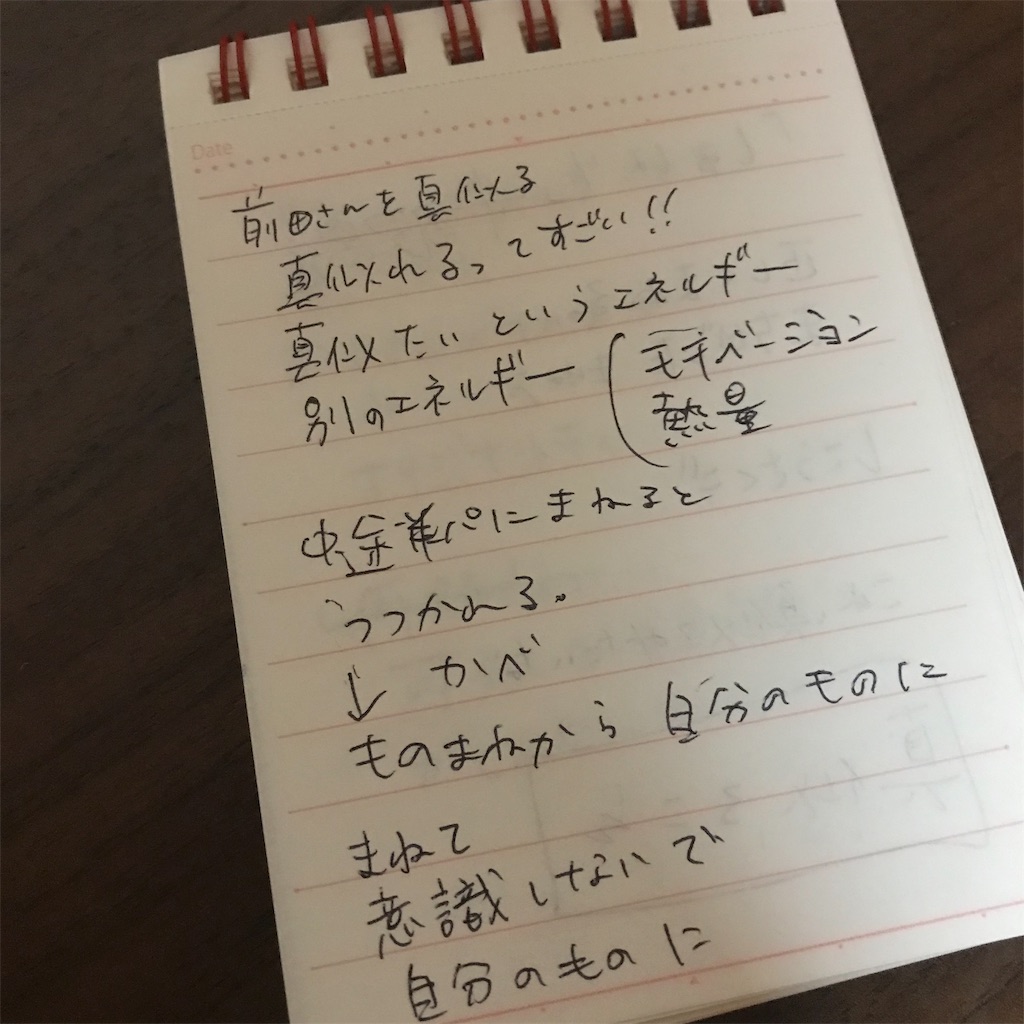 Date
前田さんを真似る
真似れるってすごい!!
真似たいというエネルギー
別のエネルギー（モチベーション
熱量
中途半パにまねると
うつかれる。
↓ かべ
ものまねから 自分のものに
まねて
意識しないで
自分のものに